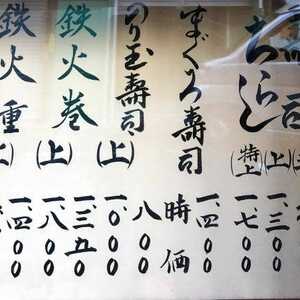 司
ちらし
(上)
(特上)
まぐろ壽司
のり玉壽司
(上)
鉄火巻
(上)
鉄火重
一、三〇〇
一、七〇〇
一、四〇〇
時価
八〇〇
一、〇〇〇
一、三五〇
一、八〇〇
一、四〇〇